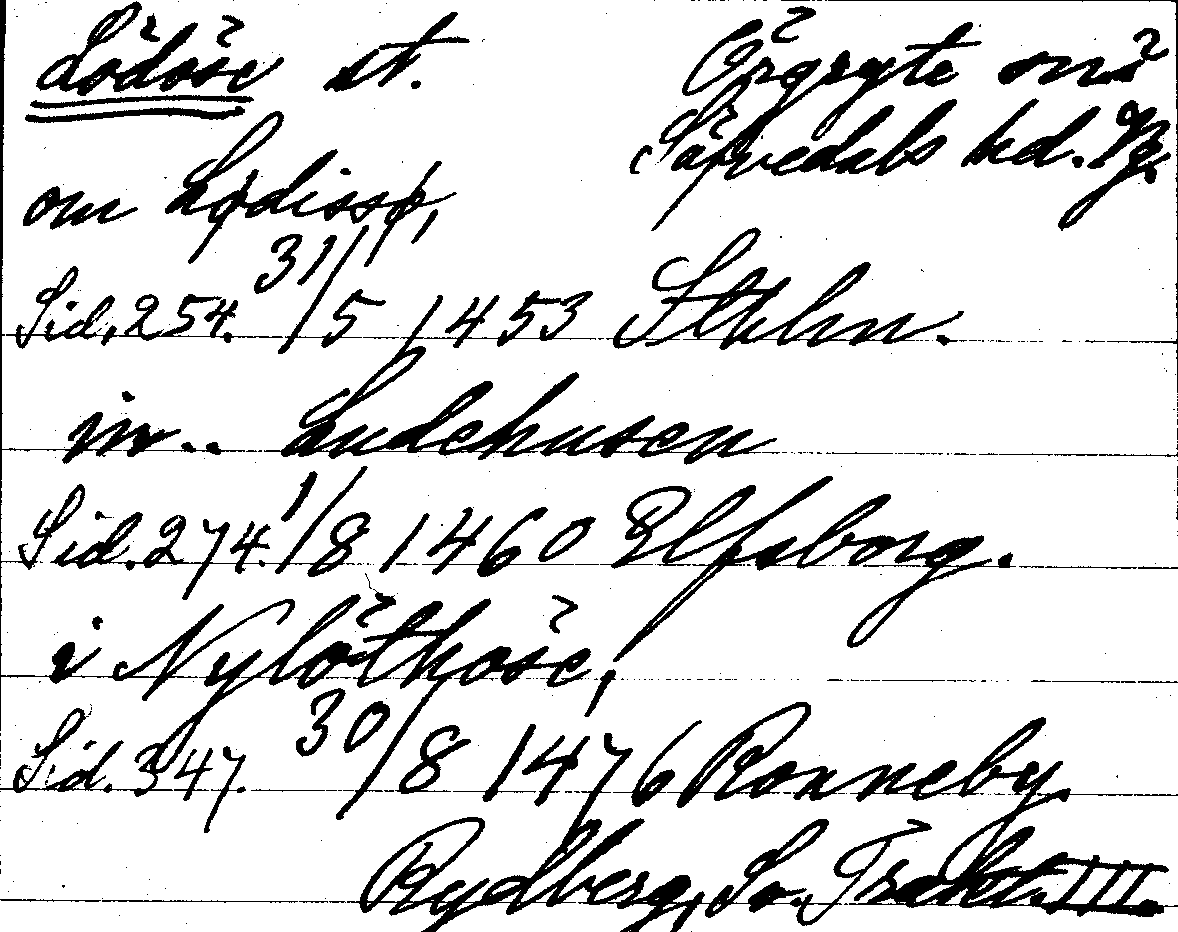 Lödöse st.
Örgryte sn
Säfvedals hd. Vg.
om Lødissø,
Sid. 254. 31/5 1453 Sthlm.
in.. Ludehusen
Sid. 274. 1/8 1460 Elfsborg.
i Nylöthöse,
Sid. 347. 30/8 1476 Ronneby.
Rydberg, Sv. Trakt. III.